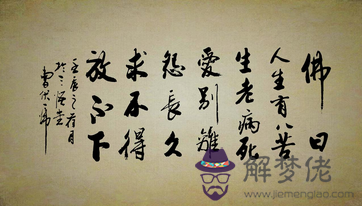 佛曰
人生有八苦
生老病死
愛別離
怨長久
求不得
放不下
壬辰之荷月
解夢佬
http://www.jiemenglao.com/